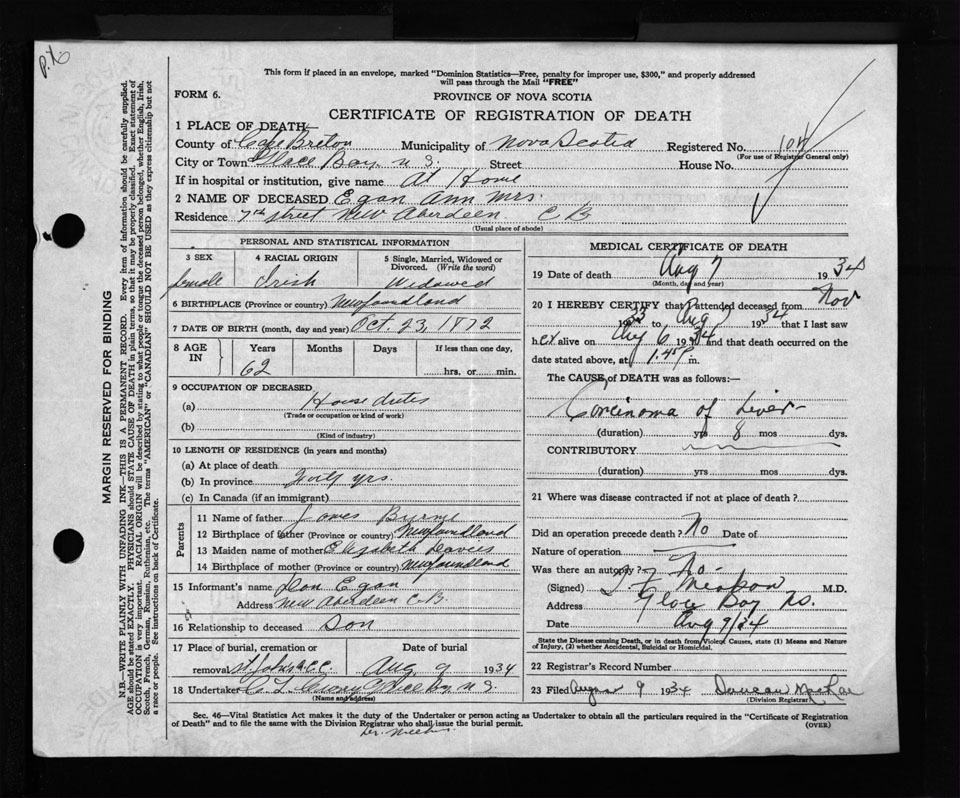 P.X.
This form if placed in an envelope, marked "Dominion Statistics—Free, penalty for improper use, $300," and properly addressed
will pass through the Mail "FREE"
FORM 6.
PROVINCE OF NOVA SCOTIA
CERTIFICATE OF REGISTRATION OF DEATH
1 PLACE OF DEATH
County of Cape Breton Municipality of Nova Scotia Registered No. 104
(For use of Registrar General only)
City or Town Glace Bay N S. Street House No.
If in hospital or institution, give name At Home
2 NAME OF DECEASED Egan Ann Mrs.
Residence 7th street New Aberdeen C B
(Usual place of abode)
PERSONAL AND STATISTICAL INFORMATION
3 SEX 4 RACIAL ORIGIN 5 Single, Married, Widowed or
Divorced. (Write the word)
female Irish Widowed
6 BIRTHPLACE (Province or country) Newfoundland
7 DATE OF BIRTH (month, day and year) Oct. 23, 1872
8 AGE IN Years Months Days If less than one day,
62 hrs. or min.
9 OCCUPATION OF DECEASED
(a) House duties
(Trade or occupation or kind of work)
(b)
(Kind of industry)
10 LENGTH OF RESIDENCE (in years and months)
(a) At place of death
(b) In province yrs.
(c) In Canada (if an immigrant)
Parents
11 Name of father James Byrne
12 Birthplace of father (Province or country) Newfoundland
13 Maiden name of mother Elizabeth Davies
14 Birthplace of mother (Province or country) Newfoundland
15 Informant's name Con Egan
Address New Aberdeen C.B.
16 Relationship to deceased Son
17 Place of burial, cremation or Date of burial
removal St Johns R.C.C. Aug 9 1934
18 Undertaker C L N S.
(Name and address)
MEDICAL CERTIFICATE OF DEATH
19 Date of death Aug 7 1934
(Month, day and year)
20 I HEREBY CERTIFY that I attended deceased from Nov
1933 to Aug 7 1934 that I last saw
her alive on Aug 6 1934 and that death occurred on the
date stated above, at 1.45 P m.
The CAUSE of DEATH was as follows:—
Carcinoma of Liver
(duration) yrs 8 mos dys.
CONTRIBUTORY
(duration) yrs mos dys.
21 Where was disease contracted if not at place of death?
Did an operation precede death? No Date of
Nature of operation
Was there an autopsy? No
(Signed) M.D.
Address Glace Bay N.S.
Date Aug 9/34
State the Disease causing Death, or in death from Violent Causes, state (1) Means and Nature
of Injury, (2) whether Accidental, Suicidal or Homicidal.
22 Registrar's Record Number
23 Filed August 9 1934 Duncan MacRae
(Division Registrar)
Sec. 46—Vital Statistics Act makes it the duty of the Undertaker or person acting as Undertaker to obtain all the particulars required in the "Certificate of Registration
of Death" and to file the same with the Division Registrar who shall issue the burial permit.
(OVER)
Dr.
MARGIN RESERVED FOR BINDING
N.B.—WRITE PLAINLY WITH UNFADING INK—THIS IS A PERMANENT RECORD. Every item of information should be carefully supplied.
AGE should be stated EXACTLY. PHYSICIANS should STATE CAUSE OF DEATH in plain terms, so that it may be properly classified. Exact statement of
OCCUPATION is very important. RACIAL ORIGIN will be described by stating to what people or tongue the deceased person belonged, whether English, Irish,
Scotch, French, German, Russian, Ruthenian, etc. The terms "AMERICAN" or "CANADIAN" SHOULD NOT BE USED as they express citizenship but not
a race or people. See instructions on back of Certificate.